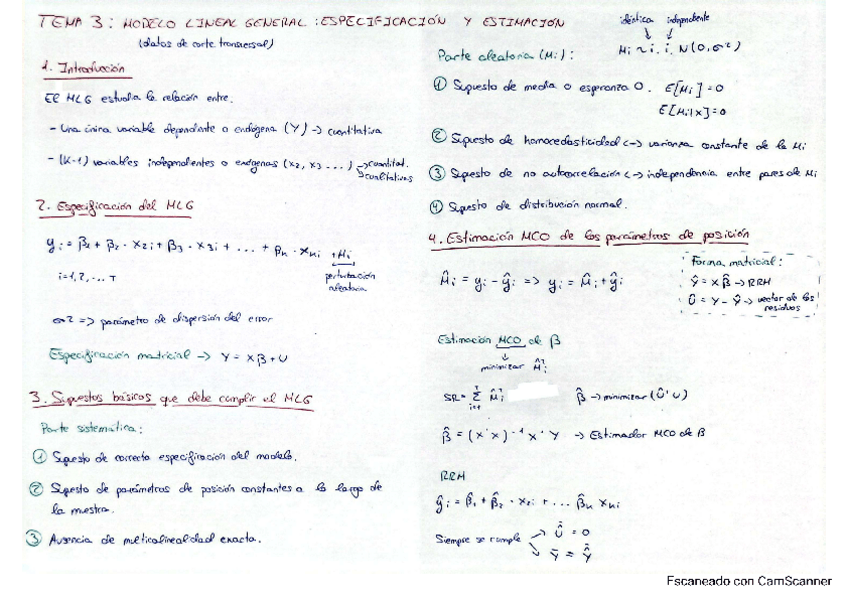 TEMA 3: MODELO LINEAL GENERAL: ESPECIFICACIÓN Y ESTIMACIÓN
(datos de corte transversal)
1. Introducción
El MLG estudia la relación entre.
- Una única variable dependiente o endógena (Y) → cuantitativa
- (K-1) variables independientes o exógenas (x2, x3 ...) → cuantitat.
→ cualitativas
2. Especificación del MLG
yi = β1 + β2 · x2i + β3 · x3i + ... + βk · xki + Mi
perturbación
aleatoria
i=1, 2, ... T
σ2 => parámetro de dispersión del error
Especificación matricial → Y = Xβ + U
3. Supuestos básicos que debe cumplir el MLG
Parte sistemática:
① Supuesto de correcta especificación del modelo.
② Supesto de parámetros de posición constantes a lo largo de
la muestra.
③ Ausencia de multicolinealidad exacta.
idéntica independiente
Parte aleatoria (Mi): Mi ~ i. i. N(0, σ2)
① Supuesto de media o esperanza 0. E[Mi] = 0
E[Mi|x] = 0
② Supuesto de homocedasticidad <-> varianza constante de la Mi
③ Supuesto de no autocorrelación <-> independencia entre pares de Mi
④ Supesto de distribución normal.
4. Estimación MCO de los parámetros de posición
M̂i = yi - ŷi => yi = M̂i + ŷi
Forma matricial:
Ŷ = Xβ̂ → RRM
Û = Y - Ŷ → vector de los
residuos
Estimación MCO de β
minimizar M̂i
SR = Σ M̂i
β̂ → minimizar (Û'U)
β̂ = (X'X)-1 X'Y → Estimador MCO de β
RRM
ŷi = β̂1 + β̂2 · x2i + ... β̂k xki
Siempre se cumple → Û = 0
→ Ȳ = Ŷ
Escaneado con CamScanner